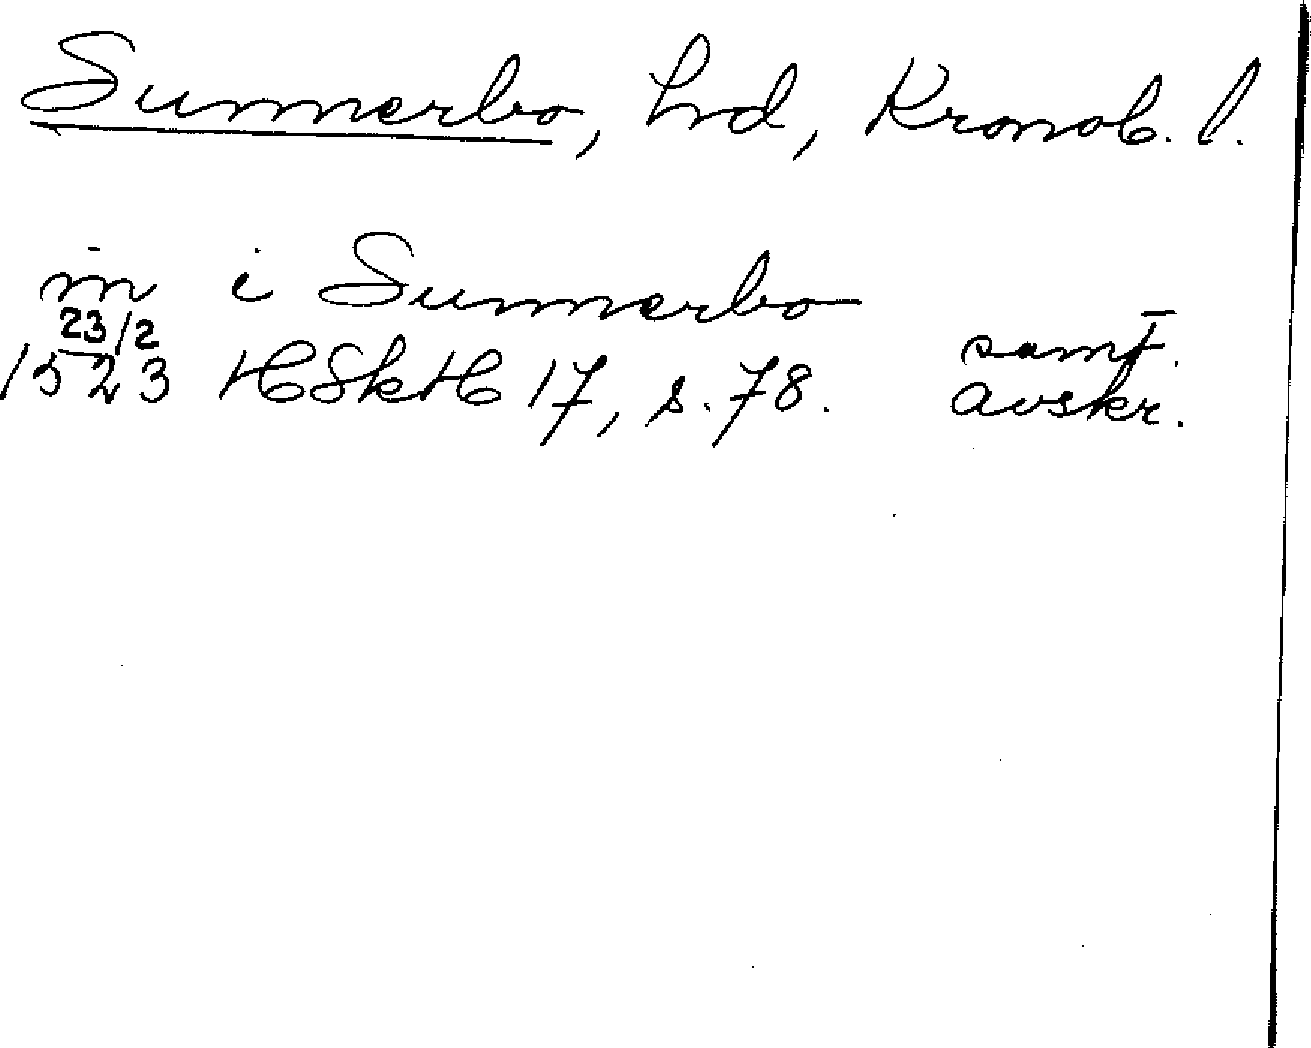 Sunnerbo, hd, Kronob. l.
in i Sunnerbo
23/2
1523 HSkH 17, s. 78.
samt.
avskr.